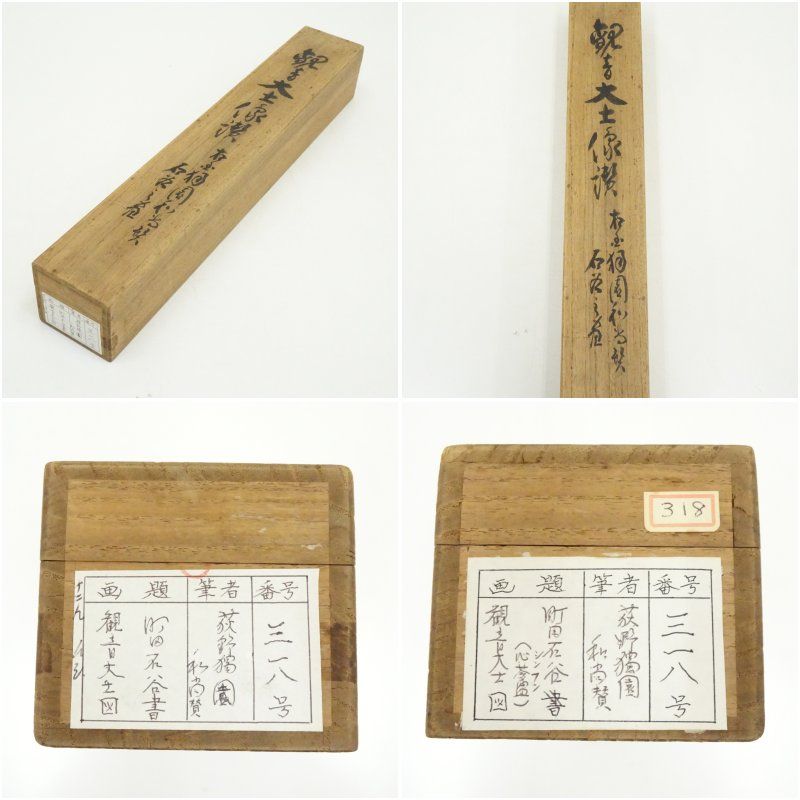 觀音大士像讃
獨園和尚賛
石谷之画
觀音大士像讃
獨園和尚賛
石谷之画
番号
筆者
画題
三一八号
荻野獨園
和尚賛
町田石谷書
観音大士図
318
番号
筆者
画題
三一八号
荻野獨園
和尚賛
町田石谷書
シンプン
観音大士図